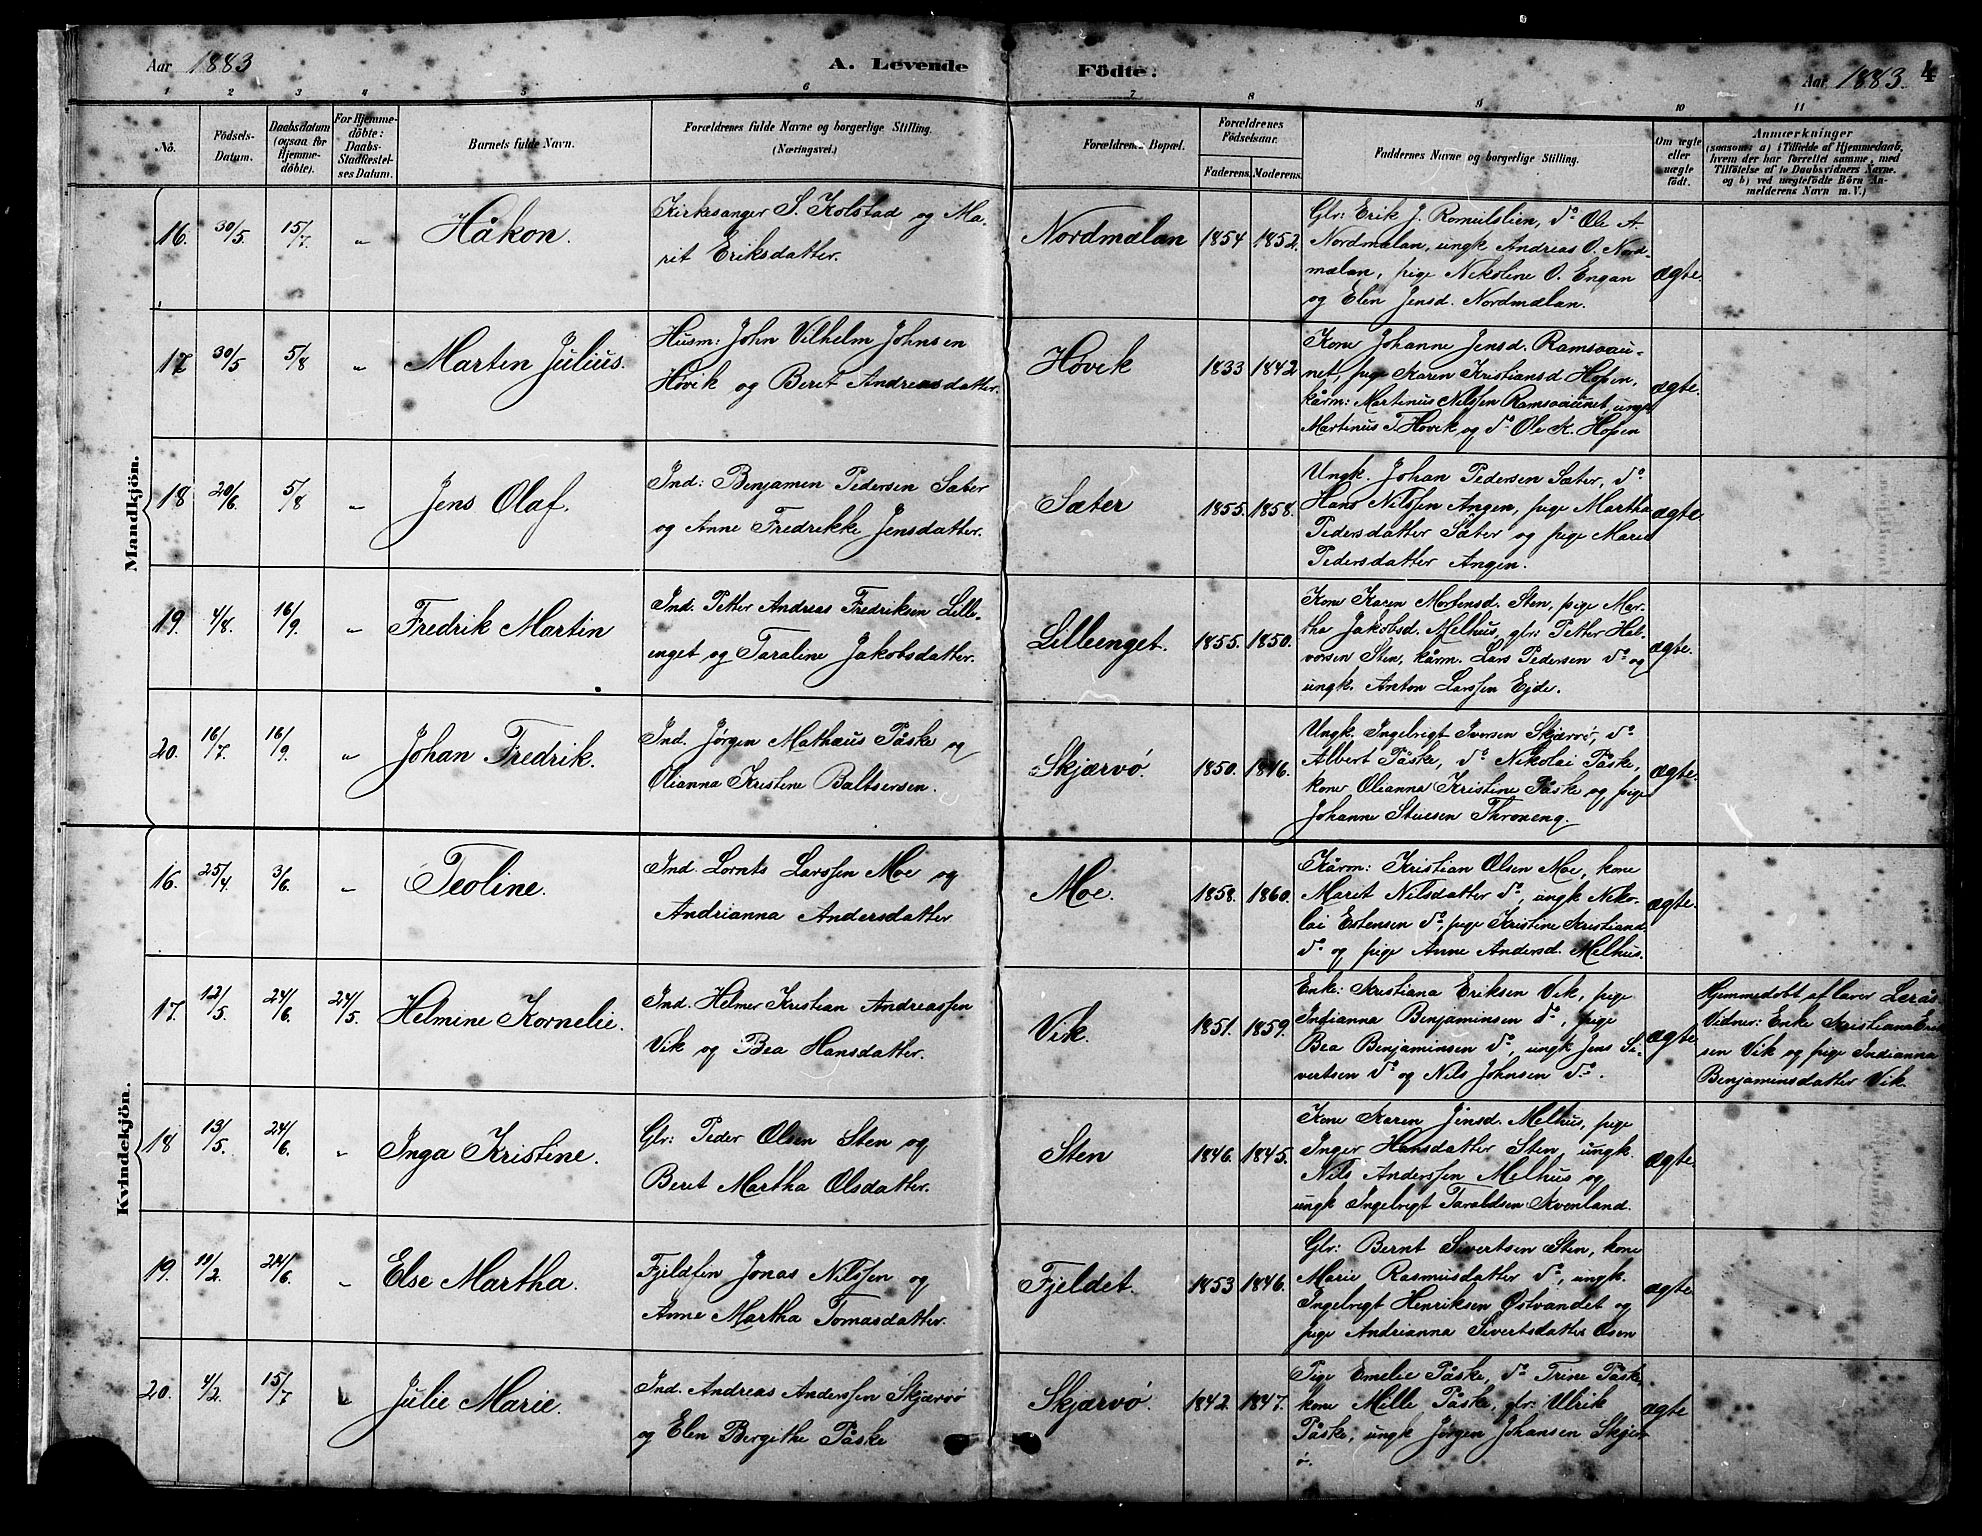 Aar 1883
A. Levende Födte.
Aar 1883.
4
1 2 3 4 5 6 7 8 9 10 11
No.
Födsels-
Datum.
Daabsdatum
(ogsaa for
Hjemme-
döbte).
For Hjemme-
döbte:
Daabs-
Stadfæstel-
ses Datum.
Barnets fulde Navn.
Forældrenes fulde Navne og borgerlige Stilling.
(Næringsvei.)
Forældrenes Bopæl.
Forældrenes
Födselsaar.
Faderens. Moderens.
Faddernes Navne og borgerlige Stilling.
Om ægte
eller
uægte
födt.
Anmærkninger
(saasom: a) i Tilfælde af Hjemmedaab,
hvem der har forrettet samme, med
Tilföielse af to Daabsvidners Navne.
og b) ved uægtefödte Börn An-
melderens Navn m. V.)
Mandkjön.
16. 30/5. 15/7. „ Håkon.
Kirkesanger S. Kolstad og Ma-
rit Eriksdatter.
Nordmælan 1854 1852.
Glr: Erik J. Romulslien, do Ole A.
Nordmælan, ungk Andreas O. Nord-
mælan, pige Nikoline O. Engan
og Elen Jensd. Nordmælan.
ægte.
17 30/5. 5/8 „ Martin Julius.
Husm: John Vilhelm Johnsen
Hovik og Beret Andreasdatter.
Hovik 1833 1842
Kone Johanne Jensd. Ramsvau-
net, pige Karen Kristiansd Hopen,
kårm: Martinus Nilssen Ramsvaunet, ungk
Martinus T. Hovik og do Ole K. Hopen
ægte.
18 20/6. 5/8 „ Jens Olaf.
Ind: Benjamin Pedersen Sæter
og Anne Fredrikke Jensdatter.
Sæter 1855. 1858.
Ungk. Johan Pedersen Sæter, do
Hans Nilssen Angen, pige Martha
Pedersdatter Säter og pige Marie
Pedersdatter Angen.
ægte
19. 4/8. 16/9 „ Fredrik Martin
Ind. Petter Andreas Fredriksen Lille-
enget og Taraline Jakobsdatter.
Lilleenget. 1855. 1850.
Kone Karen Mortensd. Sten, pige Mar-
tha Jakobsd. Melhus, glr: Petter Hal-
vorsen Sten, kårm. Lars Pedersen do og
ungk. Anton Larssen Ejde.
ægte.
20. 16/7. 16/9 „ Johan Fredrik.
Ind. Jørgen Mathæus Påske og
Olianna Kristine Baltsersen.
Skjærvö. 1850. 1846.
Ungk. Ingebrigt Iversen Skjærvø, do
Albert Påske, do Nikolai Påske,
kone Olianna Kristine Påske og pige
Johanne Stuesen Throneng.
ægte.
Kvindekjön.
16. 25/4 3/6. „ Teoline.
Ind. Lornts Larssen Moe og
Andrianna Andersdatter
Moe. 1858. 1860.
Kårm: Kristian Olsen Moe, kone
Maret Nilsdatter do, ungk Niko-
lai Estensen do, pige Kristine Kristiansd
do og pige Anne Andersd. Melhus.
ægte.
17. 12/5. 24/6. 24/5. Helmine Kornelie.
Ind. Helmer Kristian Andreassen
Vik og Bea Hansdatter.
Vik. 1851. 1859.
Enke: Kristiana Eriksen Vik, pige
Indianna Benjaminsen do, pige
Bea Benjaminsen do, ungk Jens Si-
vertsen do og Nils Johnsen do.
ægte
Hjemmedøbt af lærer Lerås
Vidner: Enke Kristiana Erik
sen Vik og pige Indianna
Benjaminsdatter Vik.
18 13/5. 24/6. „ Inga Kristine.
Glr: Peder Olsen Sten og
Beret Martha Olsdatter.
Sten 1846. 1845.
Kone Karen Jensd. Melhus, pige
Inger Hansdatter Sten, ungk.
Nils Anderssen Melhus og
ungk Ingebrigt Taraldsen Kvenland.
ægte
19. 11/2. 24/6. „ Else Martha.
Fjeldfin Jonas Nilssen og
Anne Martha Tomasdatter.
Fjeldet. 1853 1846.
Glr: Bernt Sivertsen Sten, kone
Marie Rasmusdatter do, ungk.
Ingebrigt Henriksen Østvandet og
pige Andrianna Sivertsdatter Osen
ægte
20. 4/2. 15/7 „ Julie Marie.
Ind. Andreas Anderssen Skjærvø
og Elen Bergithe Påske
Skjærvö. 1842. 1847.
Pige Emelie Påske, do Trine Påske,
kone Mille Påske, glr: Ulrik
Påske, ungk Jørgen Johansen Skjær-
ø.
ægte